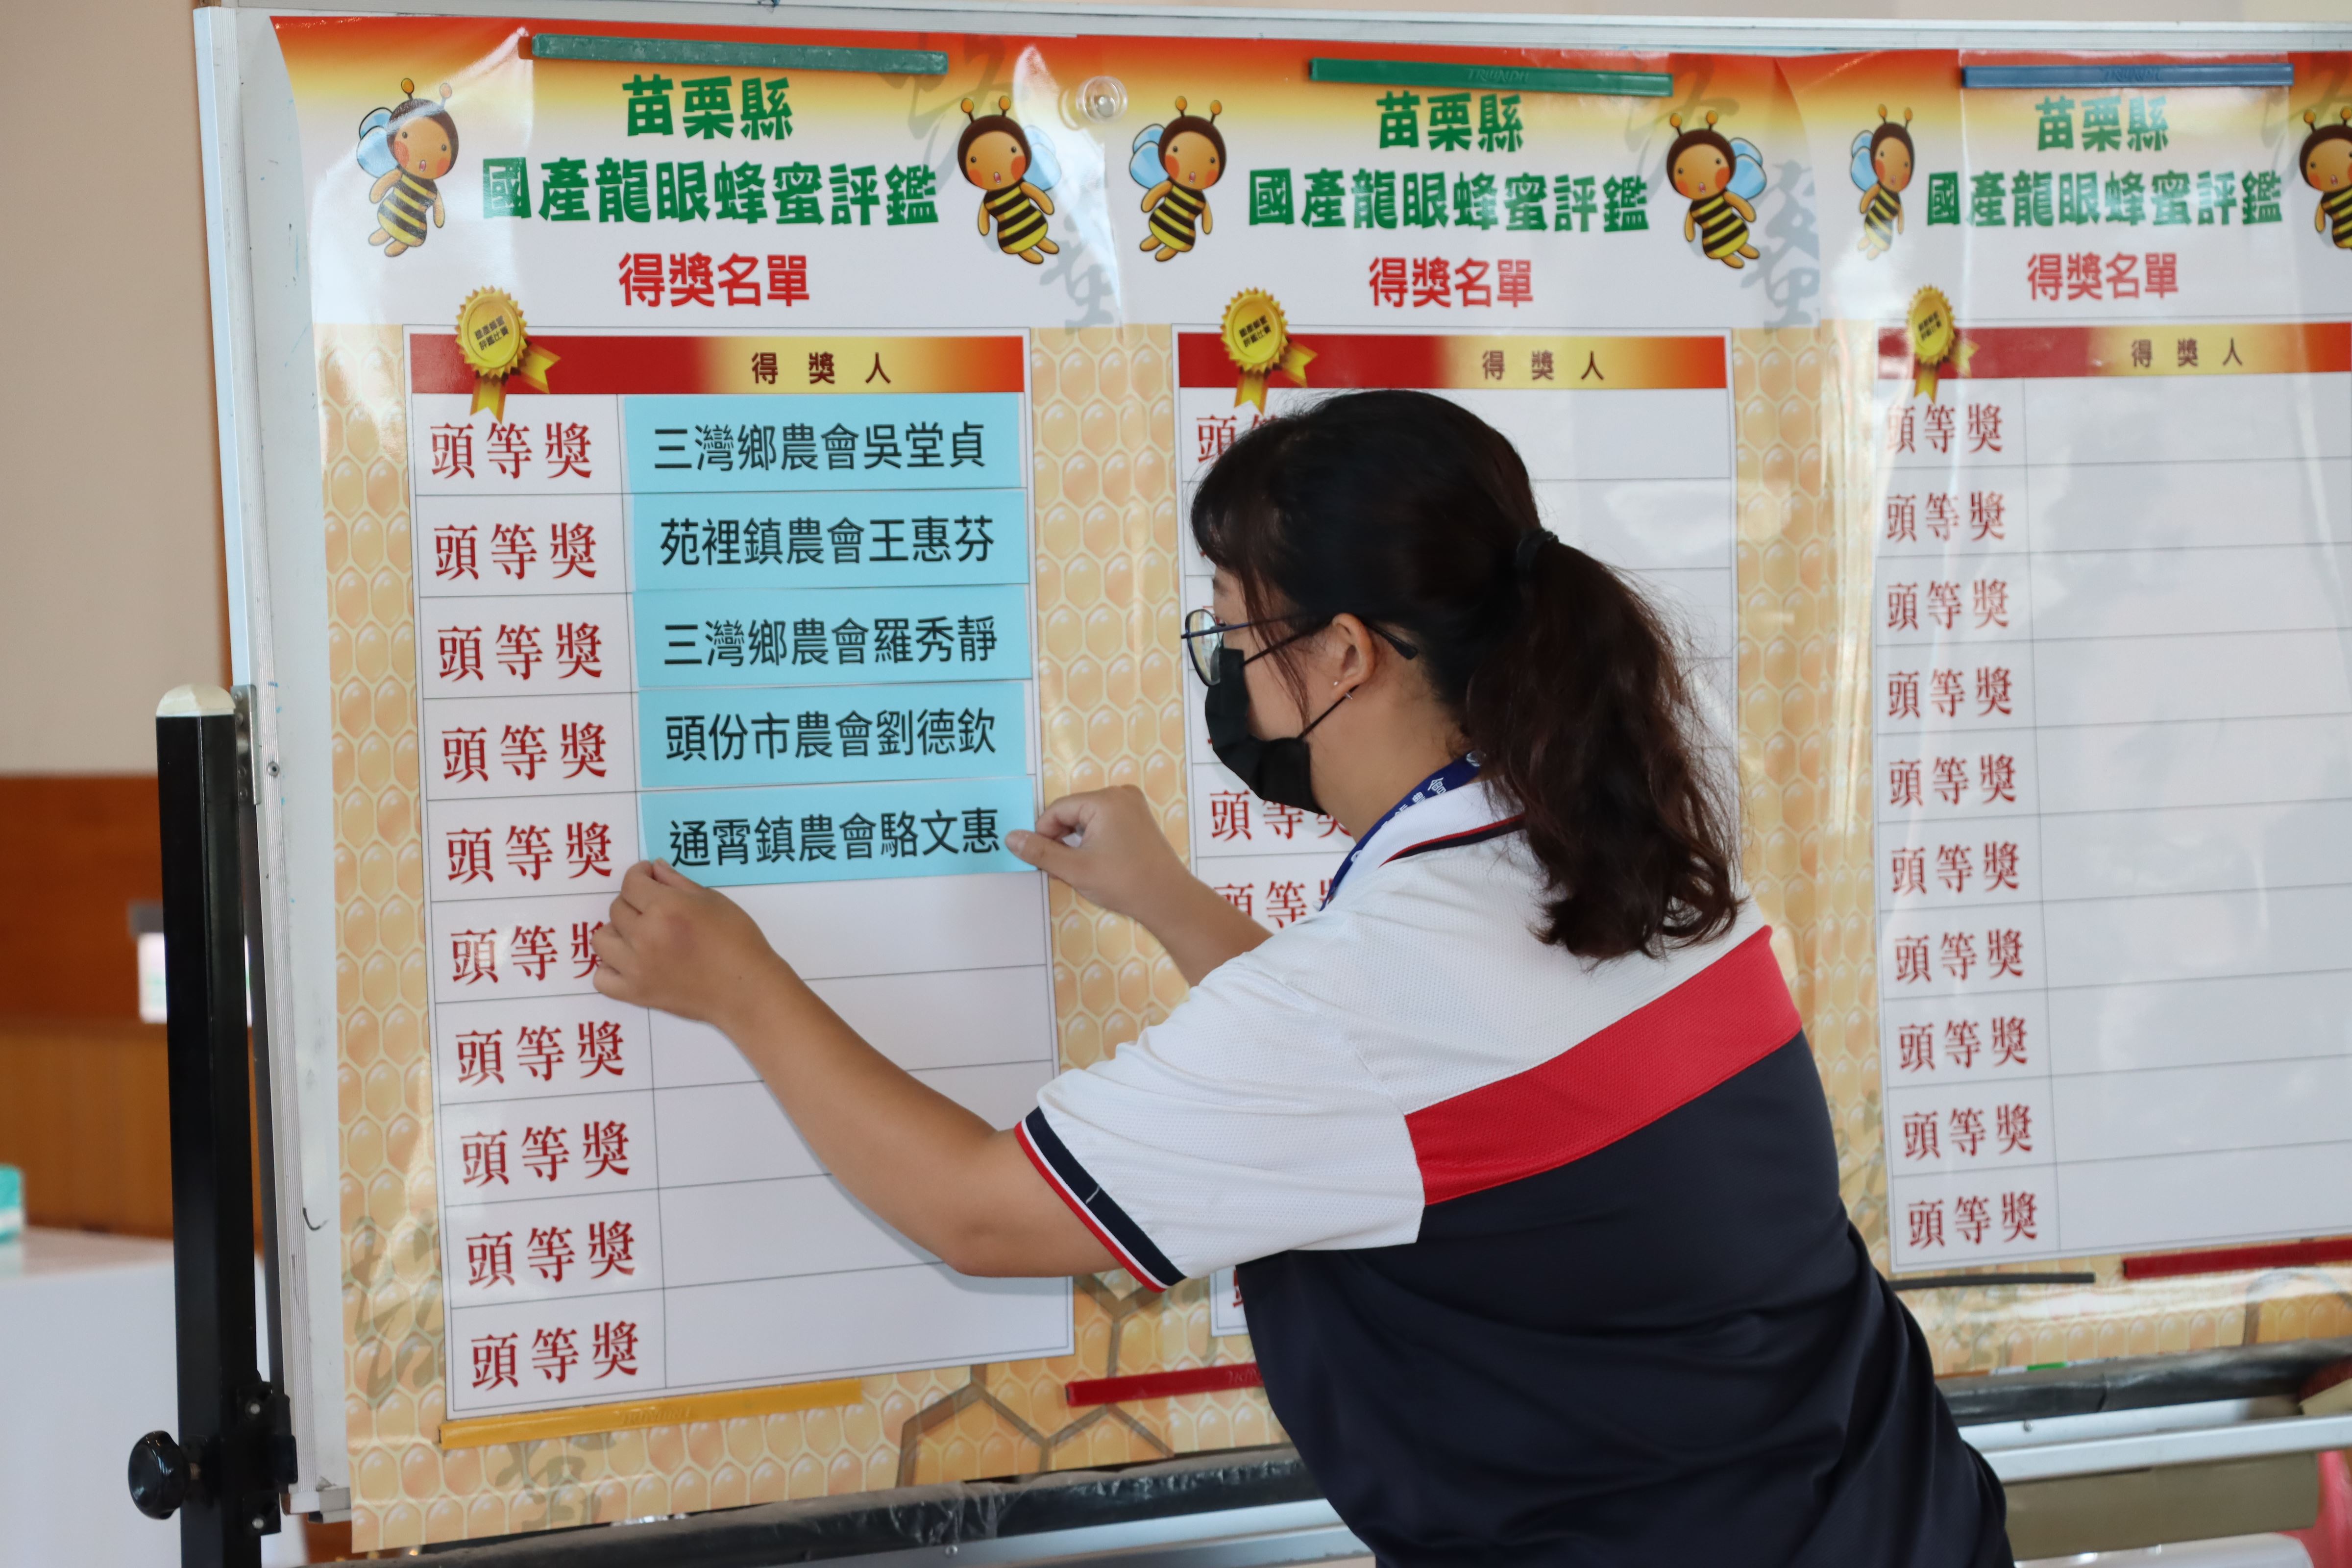 苗栗縣
國產龍眼蜂蜜評鑑
得獎名單
得獎人
頭等獎 三灣鄉農會吳堂貞
頭等獎 苑裡鎮農會王惠芬
頭等獎 三灣鄉農會羅秀靜
頭等獎 頭份市農會劉德欽
頭等獎 通霄鎮農會駱文惠
頭等獎
頭等獎
頭等獎
頭等獎
頭等獎
苗栗縣
國產龍眼蜂蜜評鑑
得獎名單
得獎人
頭
頭等獎
頭等獎
TRIUNPH
苗栗縣
國產龍眼蜂蜜評鑑
得獎名單
得獎人
頭等獎
頭等獎
頭等獎
頭等獎
頭等獎
頭等獎
頭等獎
頭等獎
頭等獎
頭等獎